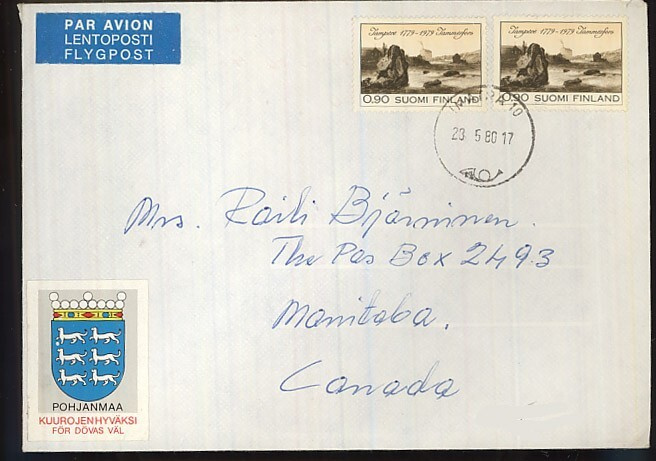 PAR AVION
LENTOPOSTI
FLYGPOST
Tampere 1779-1979 Tammerfors
0,90 SUOMI FINLAND
Tampere 1779-1979 Tammerfors
0,90 SUOMI FINLAND
10
23 5 80 17
Mrs. Raili Björninen.
The Pas Box 2493
Manitoba.
Canada
POHJANMAA
KUUROJEN HYVÄKSI
FÖR DÖVAS VÄL